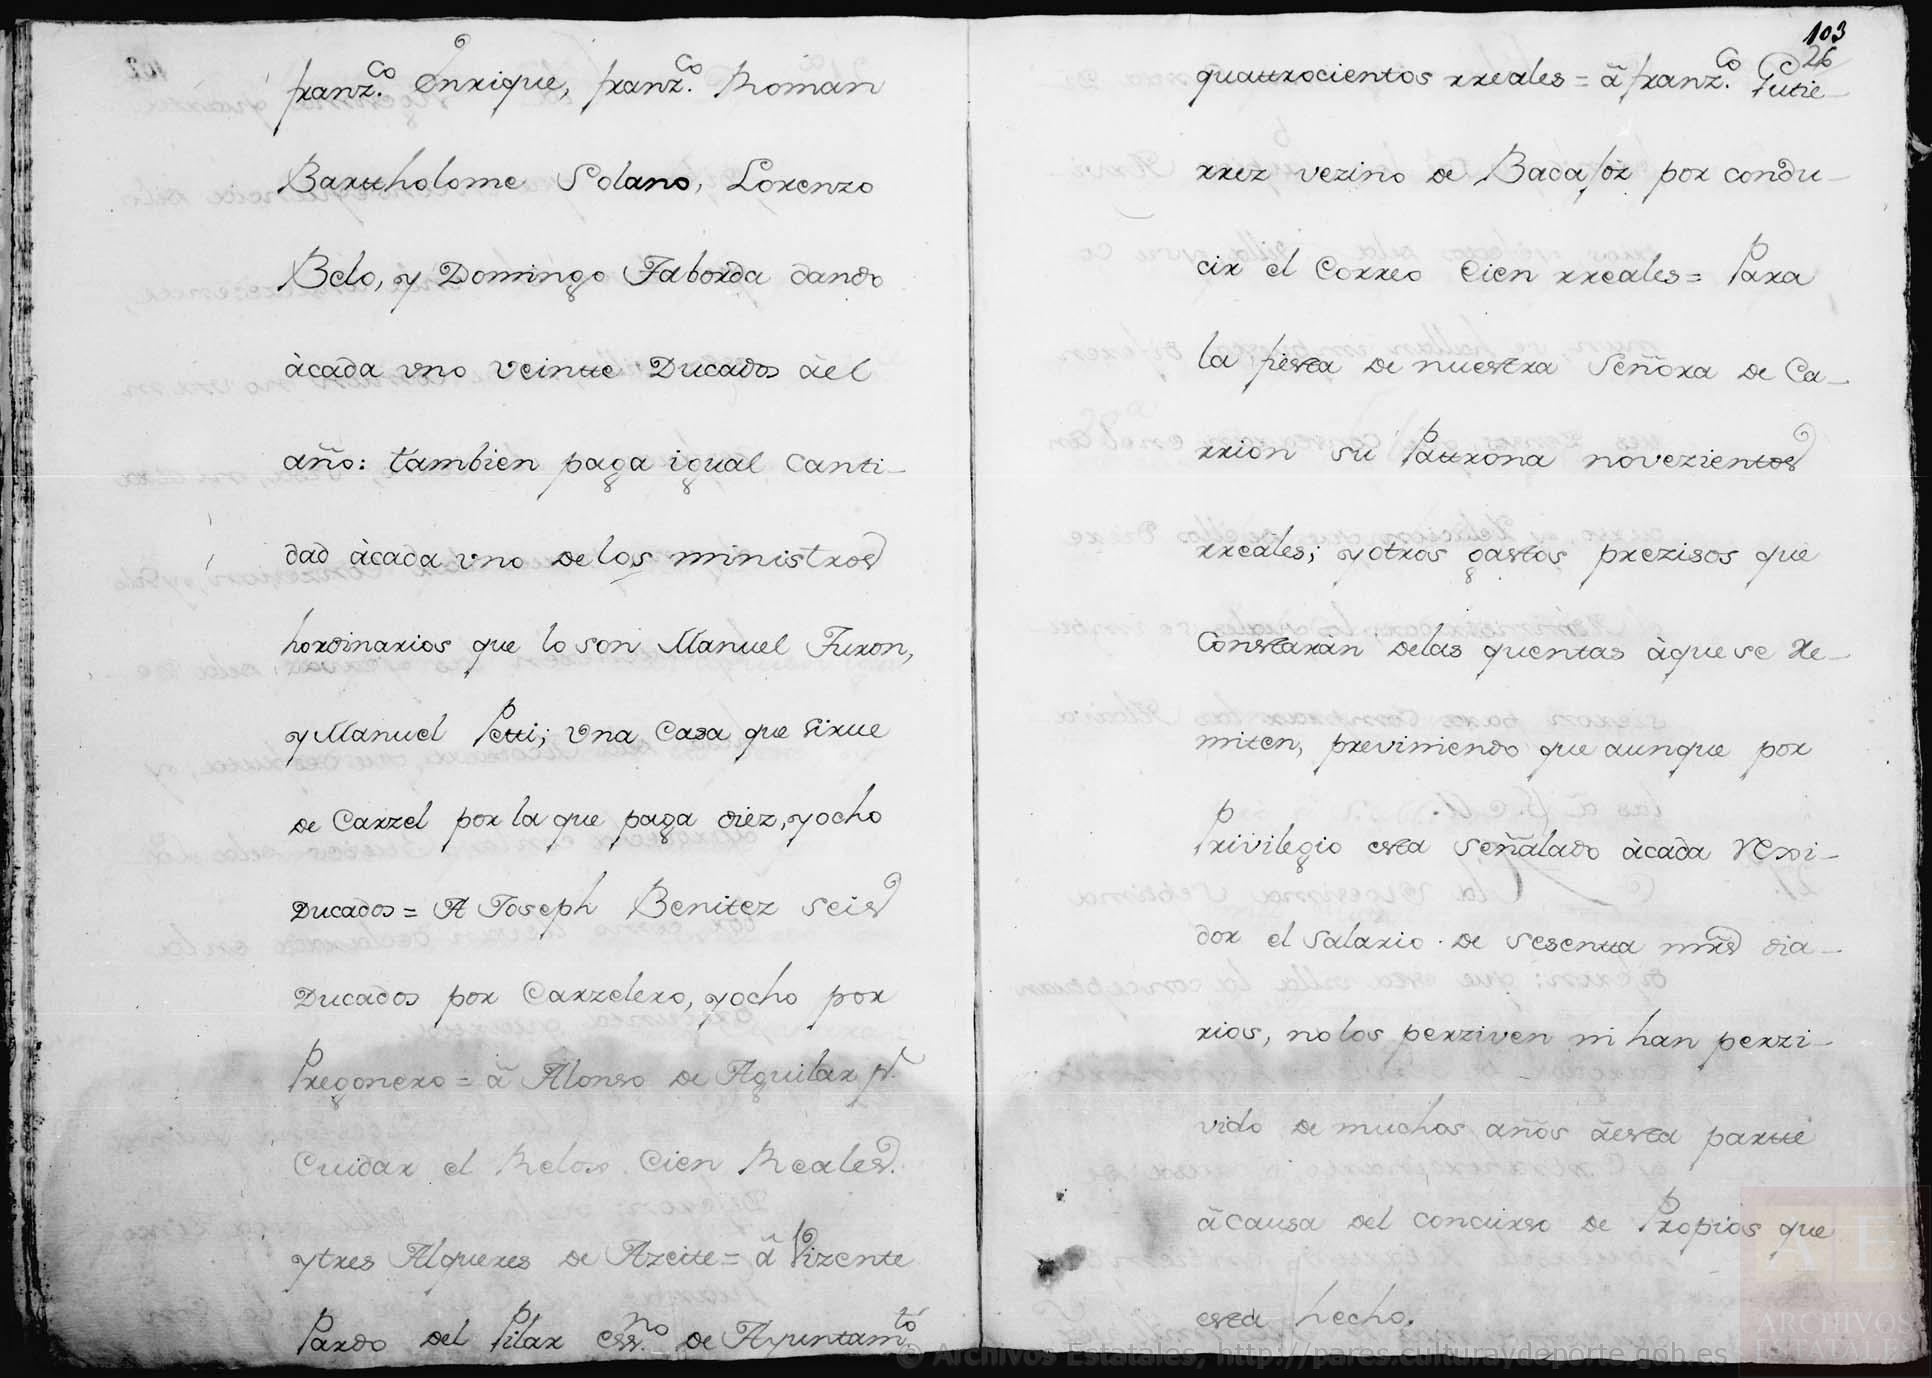 franz.co Enrique, franz.co Rroman
Barttholome Solano, Lorenzo
Belo, y Domingo Taborda dando
àcada vno veintte Ducados àel
año: tambien paga igual canti-
dad àcada vno delos ministros
hordinarios que lo son Manuel Furon,
y Manuel Petti; vna Casa que sirue
de Carzel por la que paga diez, yocho
Ducados = A Joseph Benitez seis
Ducados por Carzelero, yocho por
Pregonero = â Alonso de Aguilar pr.
Cuidar el Relox Cien Rreales.
ytres Alqueres de Azeite = â Vizente
Pardo del Pilar essno. de Ayuntamto.
103
26
quattrocientos rreales = â franz.co Gutie-
rrez vezino de Badajoz por condu-
cir el Correo Cien rreales = Para
la fiesta de nuestra Señora de Ca-
rrion su Pattrona novezientos
rreales; yotros gastos prezisos que
Constaràn delas quentas àque se Re-
miten, previniendo que aunque por
Privilegio esta señalado àcada Rexi-
dor el salario de sesentta mrs dia-
rios, nolos perziven ni han perzi-
vido de muchos años àesta partte
âcausa del concurso de Propios que
esta hecho.
© Archivos Estatales, http://pares.culturaydeporte.gob.es
AE
ARCHIVOS
ESTATALES